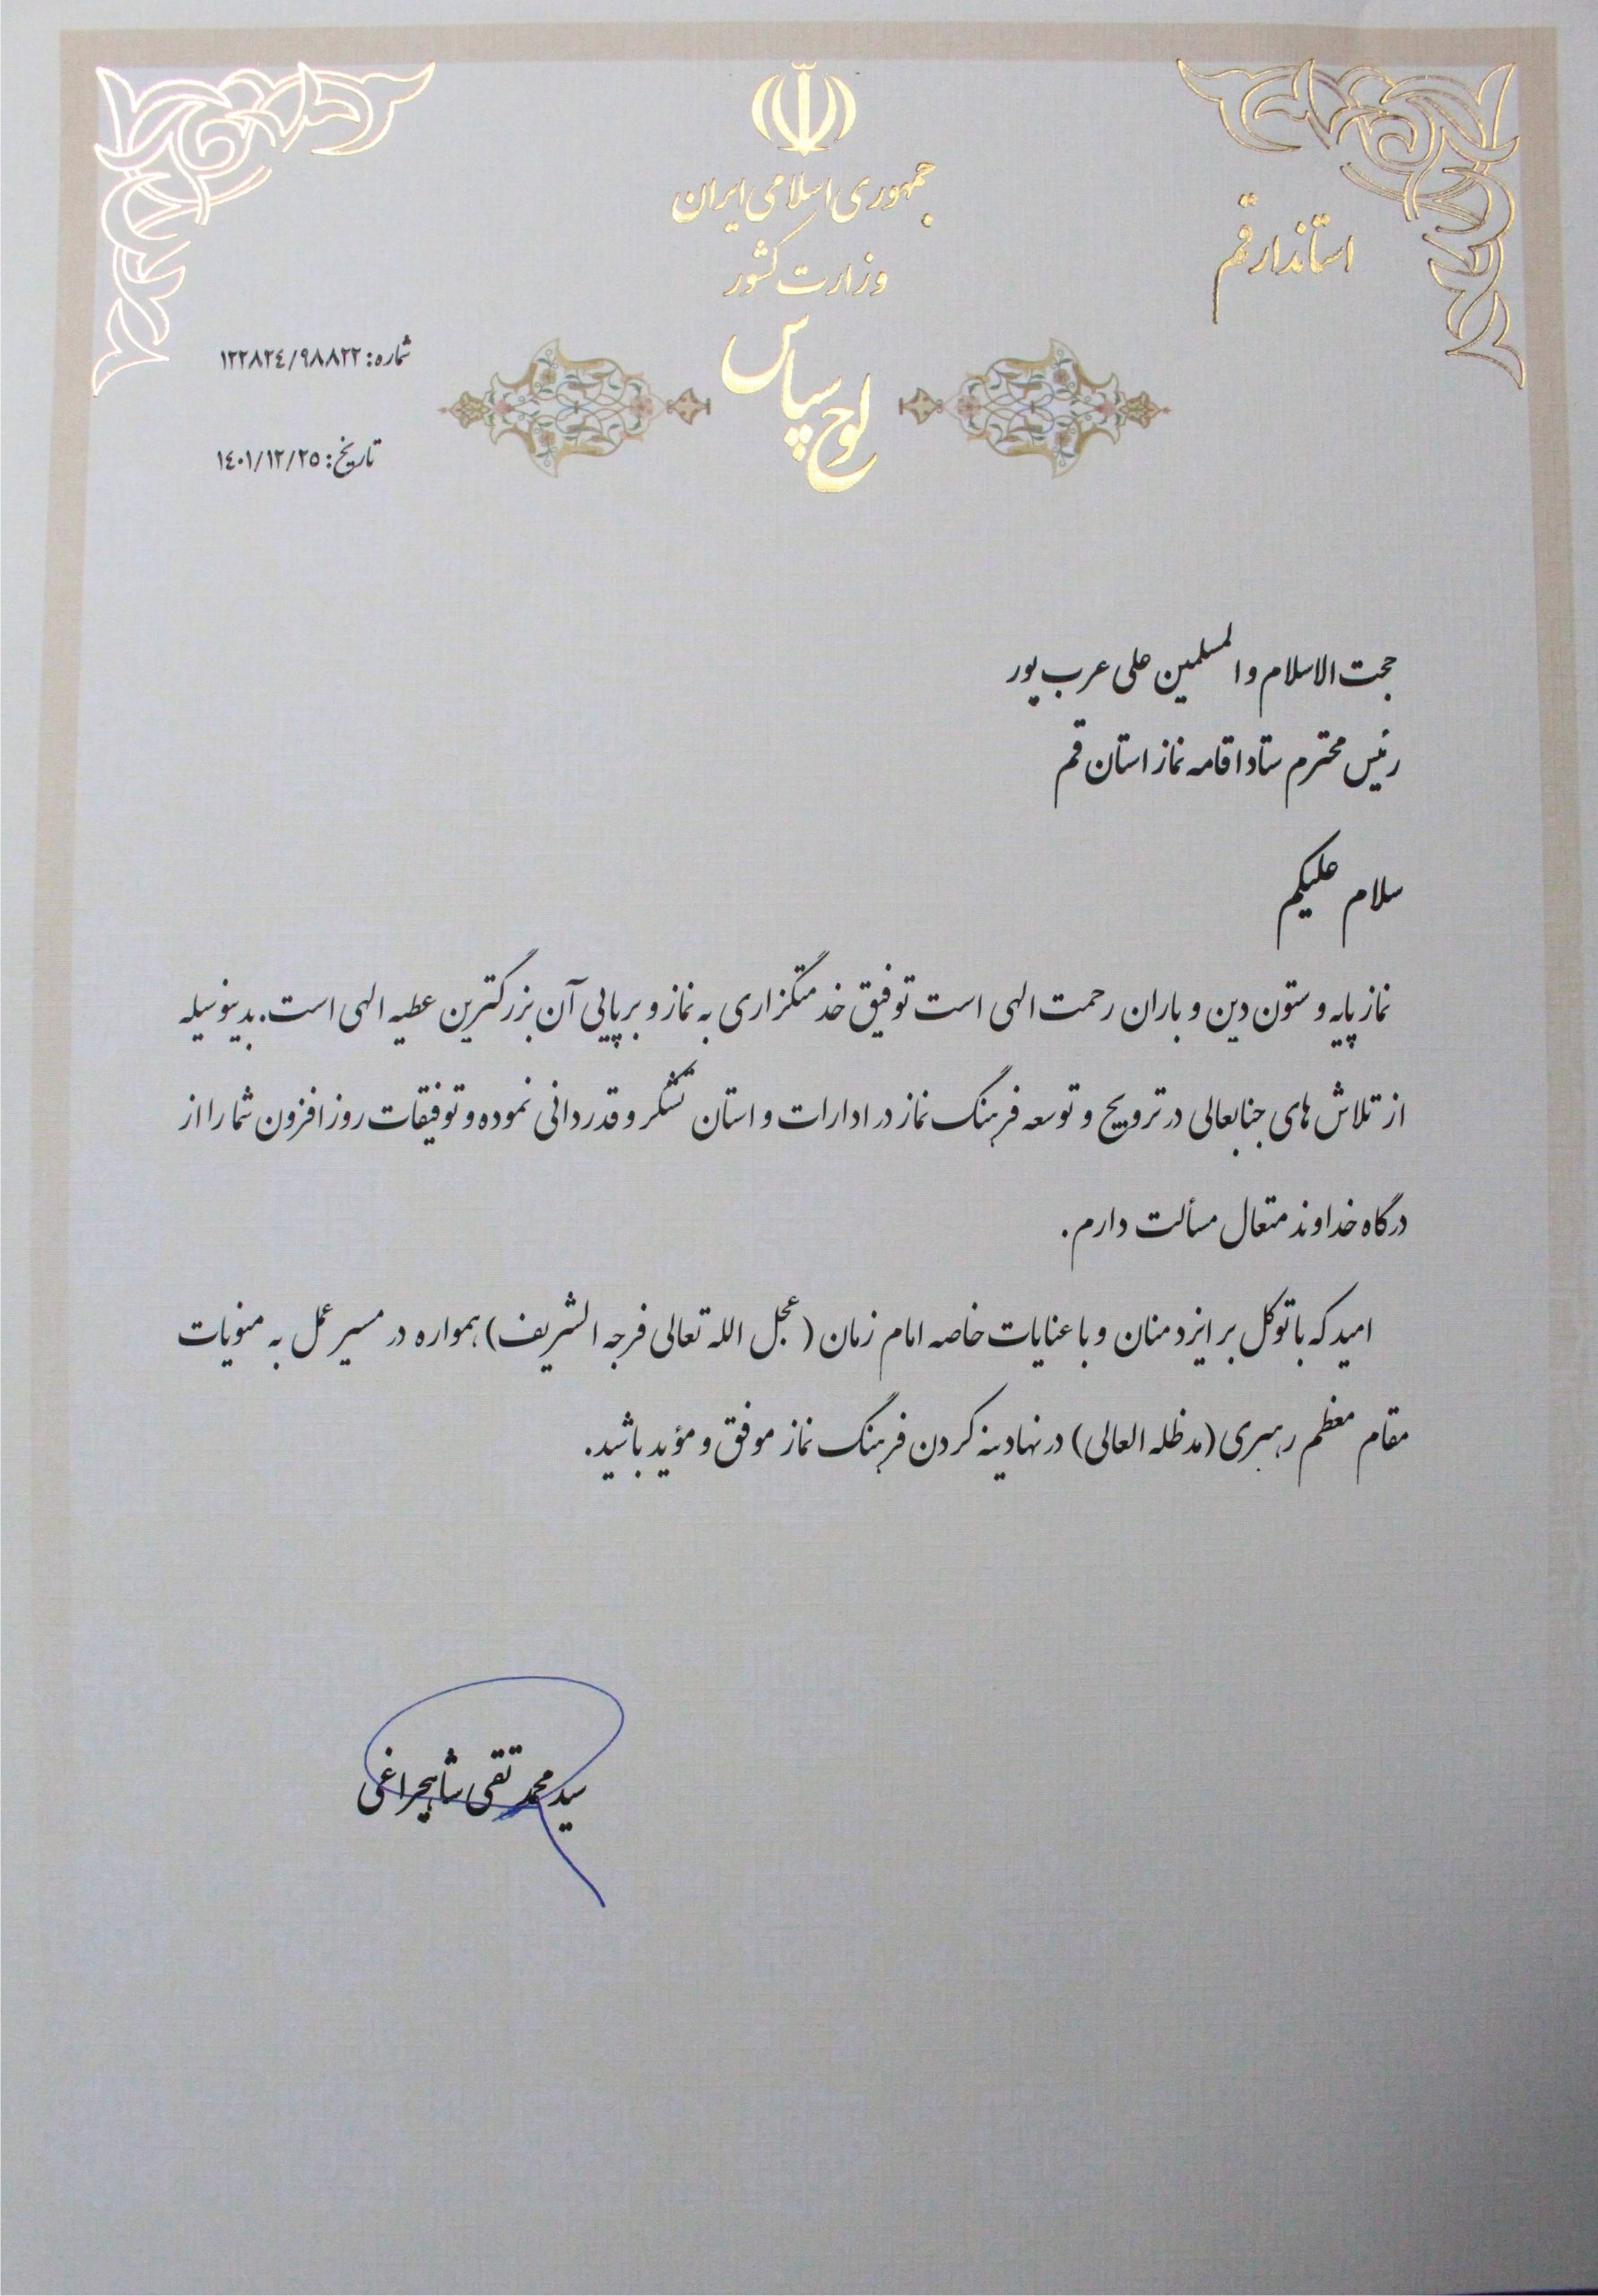 جمهوری اسلامی ایران
وزارت کشور
استاندار قم
لوح سپاس
شماره: ۱۲۲۸۲٤/۹۸۸۲۲
تاریخ: ۱٤۰۱/۱۲/۲۵
حجت الاسلام و المسلمین علی عرب پور
رئیس محترم ستاد اقامه نماز استان قم
سلام علیکم
نماز پایه و ستون دین و باران رحمت الهی است توفیق خدمتگزاری به نماز و برپایی آن بزرگترین عطیه الهی است. بدینوسیله
از تلاش های جنابعالی در ترویج و توسعه فرهنگ نماز در ادارات و استان تشکر و قدردانی نموده و توفیقات روزافزون شما را از
درگاه خداوند متعال مسألت دارم.
امید که با توکل بر ایزد منان و با عنایات خاصه امام زمان (عجل الله تعالی فرجه الشریف) همواره در مسیر عمل به منویات
مقام معظم رهبری (مدظله العالی) در نهادینه کردن فرهنگ نماز موفق و مؤید باشید.
سید محمد تقی شاهچراغی